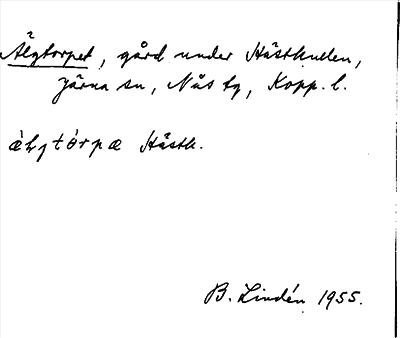 Älgtorpet, gård under Hästkullen,
Järna sn, Nås tg, Kopp. l.
ælgtórpæ Hästk.
B. Lindén 1955.